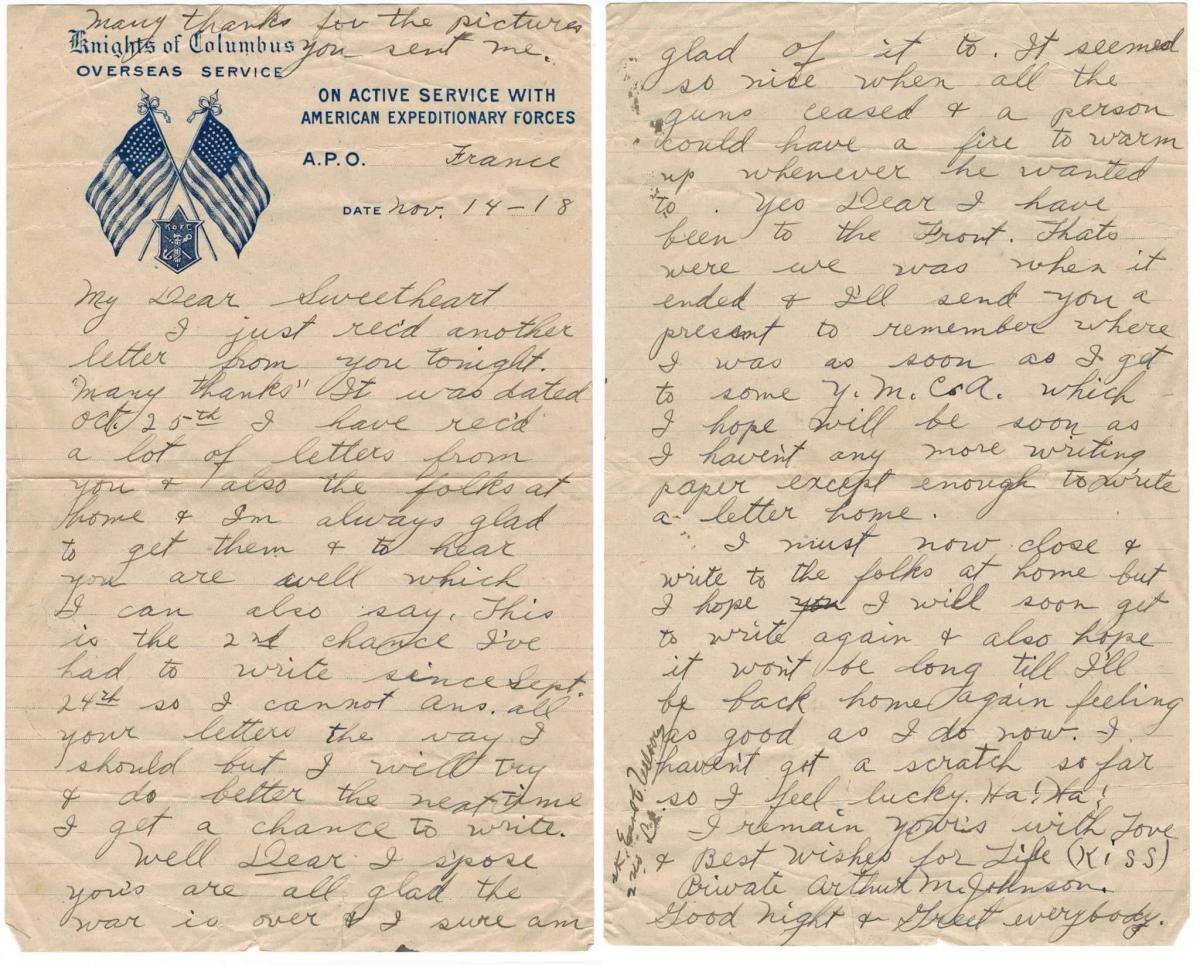 Many thanks for the pictures
you sent me.
Knights of Columbus
OVERSEAS SERVICE
ON ACTIVE SERVICE WITH
AMERICAN EXPEDITIONARY FORCES
A.P.O. France
DATE Nov. 14-18
K of C
My Dear Sweetheart
I just rec'd another
letter from you tonight.
"Many thanks" It was dated
Oct. 25th I have rec'd
a lot of letters from
you & also the folks at
home & I'm always glad
to get them & to hear
you are well which
I can also say. This
is the 2nd chance I've
had to write since Sept.
24th so I cannot ans. all
your letters the way I
should but I will try
& do better the next time
I get a chance to write.
Well Dear I s'pose
you's are all glad the
war is over & I sure am
glad of it to. It seemed
so nise when all the
guns ceased & a person
could have a fire to warm
up whenever he wanted
to. Yes Dear I have
been to the Front. Thats
were we was when it
ended & I'll send you a
present to remember where
I was as soon as I get
to some Y.M.C.A. which
I hope will be soon as
I haven't any more writing
paper except enough to write
a letter home.
I must now close &
write to the folks at home but
I hope you I will soon get
to write again & also hope
it won't be long till I'll
be back home again feeling
as good as I do now. I
haven't got a scratch so far
so I feel lucky. Ha! Ha!
I remain your's with Love
& Best Wishes for Life (KISS)
Private Arthur M. Johnson.
Good Night & Greet everybody.